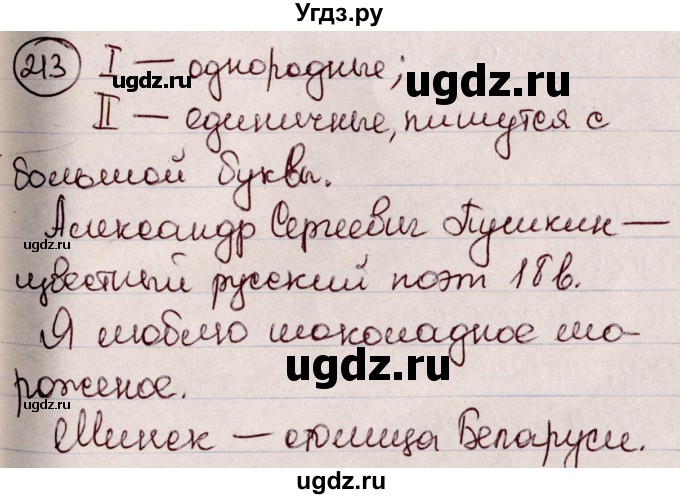 Угдз.ру
213 I — однородные;
II — единичные, пишутся с
большой буквы.
Александр Сергеевич Пушкин —
известный русский поэт 18 в.
Я люблю шоколадное мо-
роженое.
Минск — столица Беларуси.
ugdz.ru
ugdz.ru
ugdz.ru
ugdz.ru
ugdz.ru
ugdz.ru
ugdz.ru
ugdz.ru
Угдз.ру